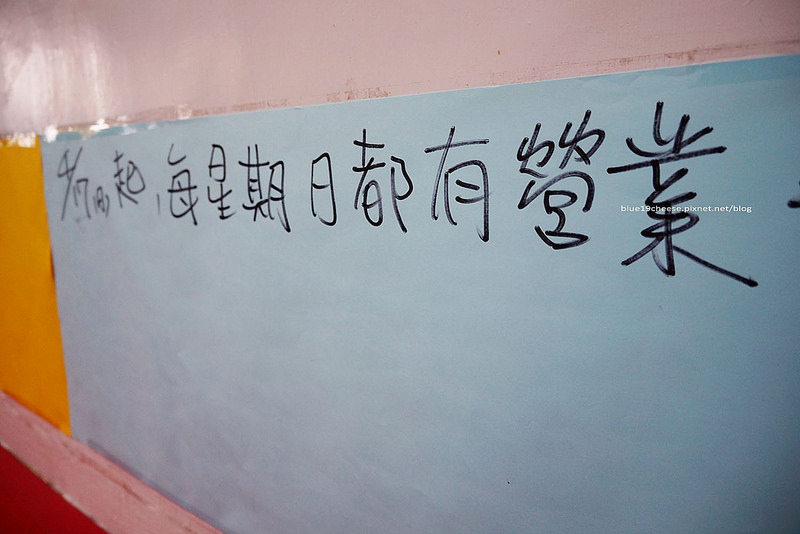 起,每星期日都有營業
blue19cheese.pixnet.net/blog